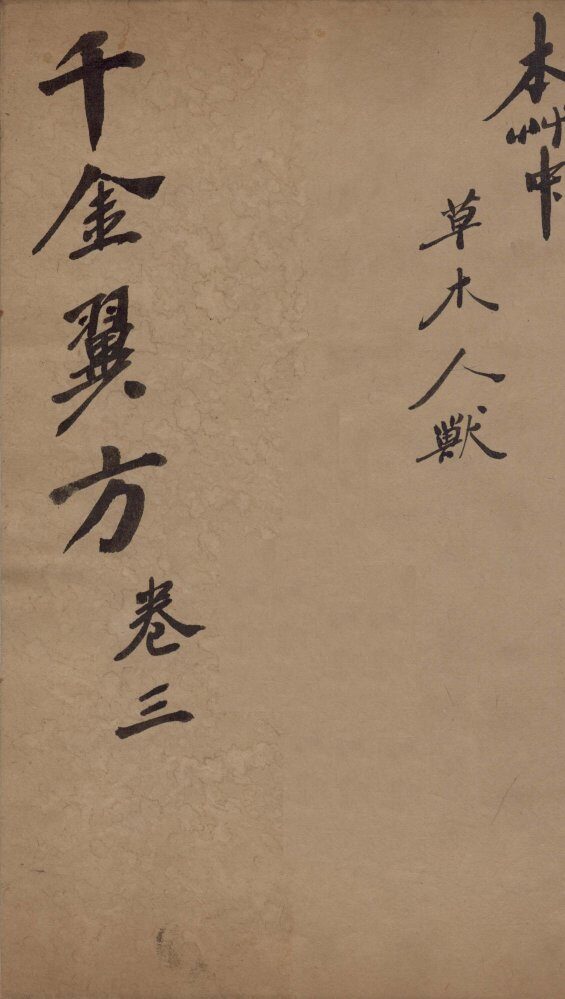 本艸中
草木人獸
千金翼方
卷三